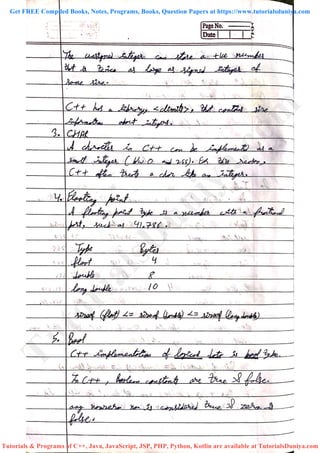 Get FREE Compiled Books, Notes, Programs, Books, Question Papers at https://www.tutorialsduniya.com
Page No.
Date
The unsigned integer can store a +ve number
that is twice as large as signed integer of
same size.
C++ has a library <climits>, that contains size
information about integers.
3. CHAR
A character in C++ can be implemented as a
small integer ( b/w 0 and 255). For this reason,
C++ often treats a char like an integer.
4. Floating point
A floating point type is a number with a fractional
part, such as 41.786.
Type Bytes
float 4
double 8
long double 10
sizeof (float) <= sizeof (double) <= sizeof (long double)
5. Bool
C++ implementation of logical data is bool type.
In C++, boolean constants are true & false.
any nonzero no is considered true & zero is
false.
Tutorials & Programs of C++, Java, JavaScript, JSP, PHP, Python, Kotlin are available at TutorialsDuniya.com